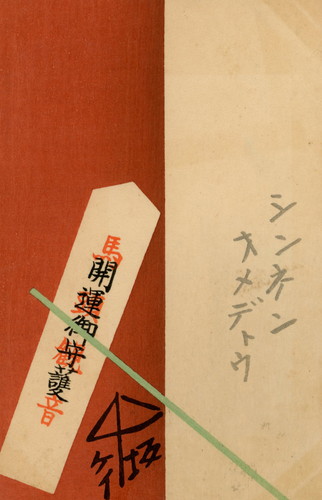 シンネン
オメデトウ
馬頭観音
開運御守護
坂
ケイ